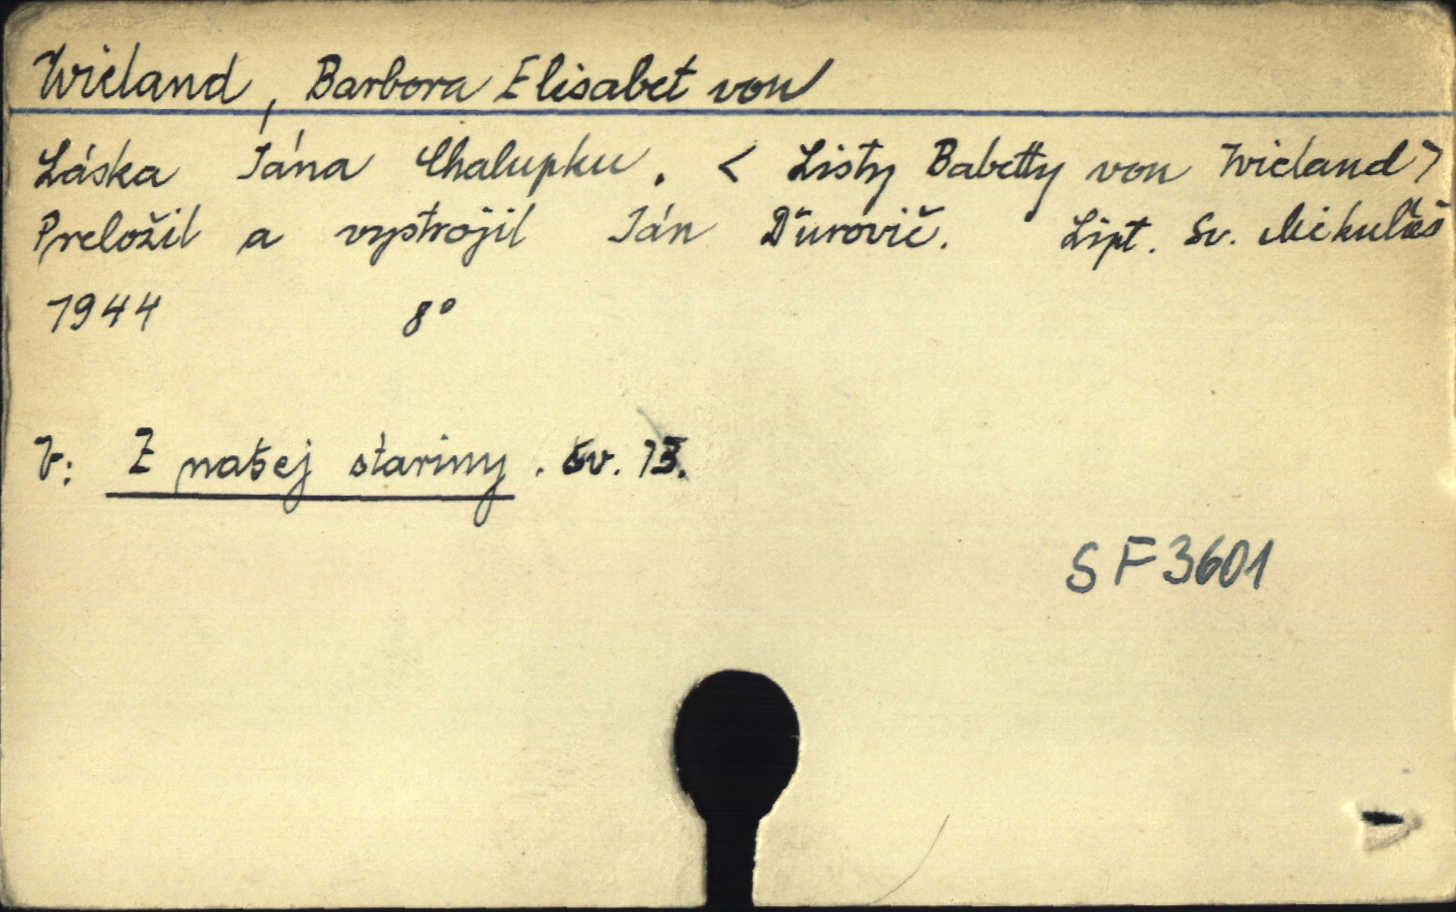 Wieland, Barbora Elisabet von
Láska Jána Chalupku. < Listy Babetty von Wieland >
Preložil a vystrojil Ján Ďurovič. Lipt. Sv. Mikuláš
1944 8°
V: Z našej stariny. sv. 13.
SF3601